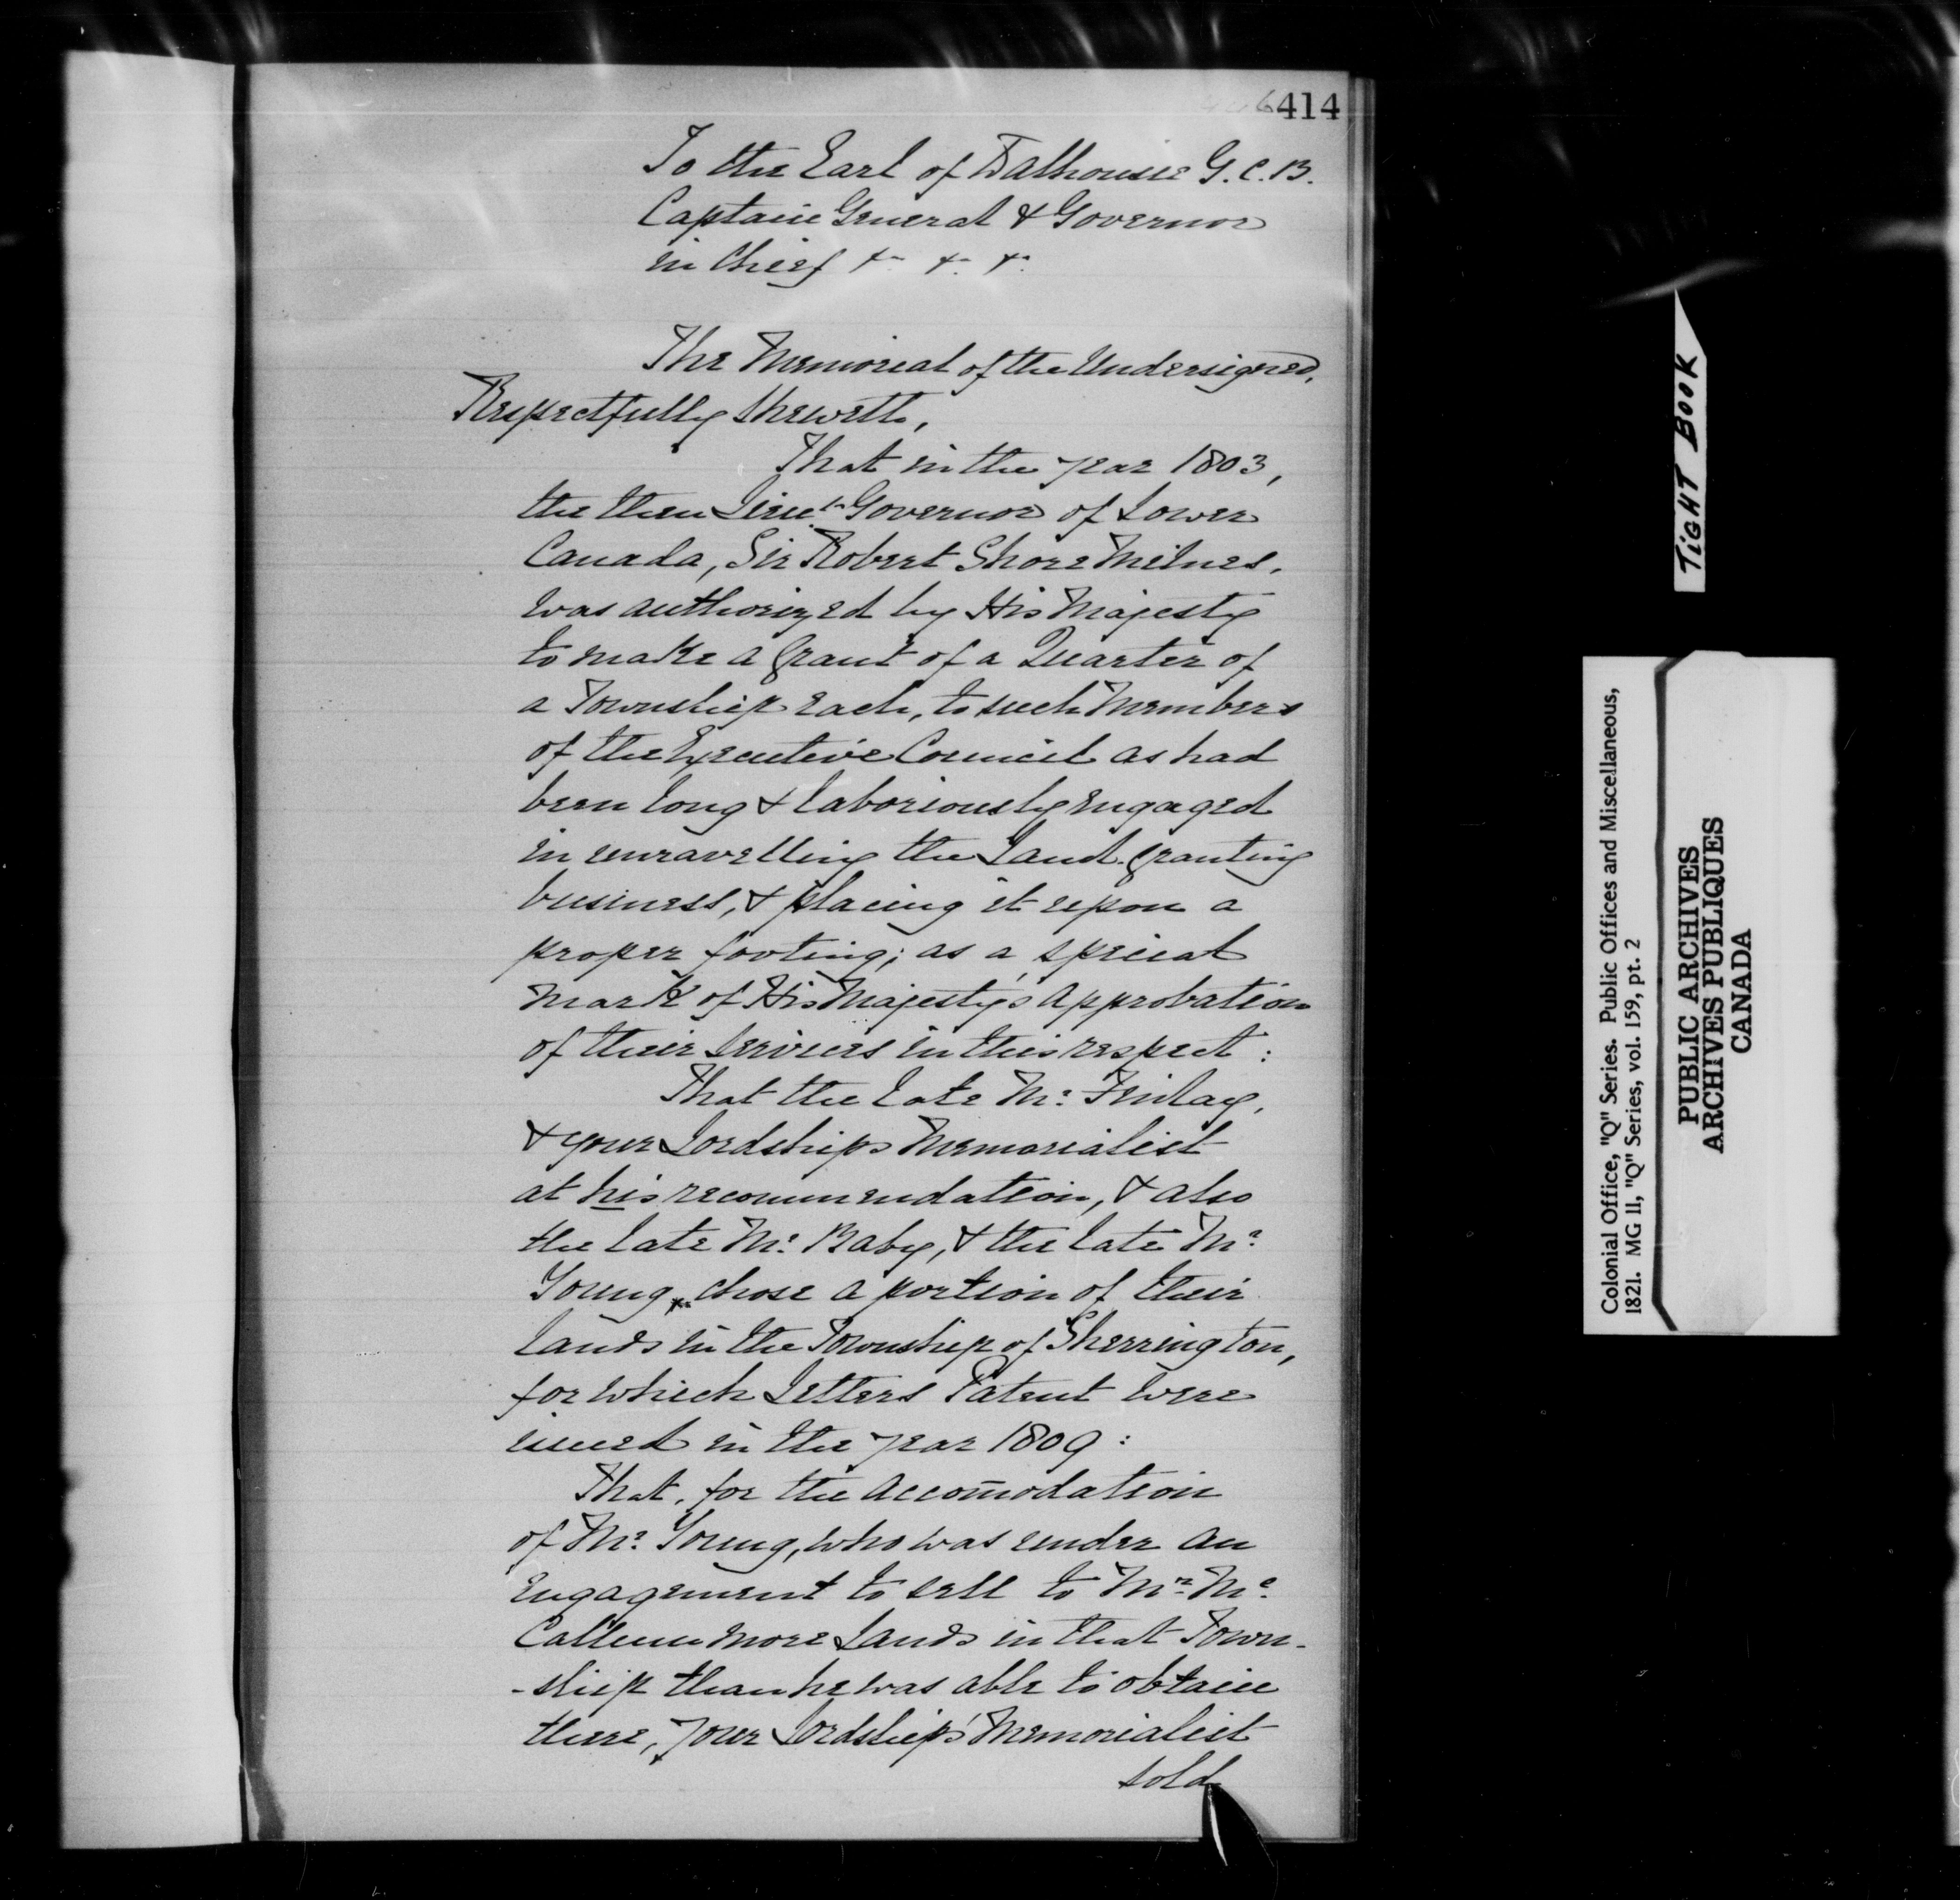 414
To the Earl of Dalhousie G.C.B.
Captain General & Governor
in Chief &c. &c. &c.
The Memorial of the Undersigned,
Respectfully Sheweth,
That in the year 1803,
the then Lieut. Governor of Lower
Canada, Sir Robert Shore Milnes,
was authorized by His Majesty
to make a grant of a Quarter of
a Township each, to such Members
of the Executive Council as had
been long & laboriously engaged
in unravelling the Land-granting
business, & placing it upon a
proper footing; as a special
mark of His Majesty's approbation
of their services in this respect:
That the late Mr. Finlay,
& your Lordship's Memorialist
at his recommendation, & also
the late Mr. Baby, & the late Mr.
Young, chose a portion of their
lands in the Township of Sherrington,
for which Letters Patent were
issued in the year 1809:
That, for the accom̄odation
of Mr. Young, who was under an
engagement to sell to Mr. Mc.
Callum more Lands in that Town-
-ship than he was able to obtain
there, your Lordship's Memorialist
sold
TIGHT BOOK
Colonial Office, "Q" Series. Public Offices and Miscellaneous,
1821. MG 11, "Q" Series, vol. 159, pt. 2
PUBLIC ARCHIVES
ARCHIVES PUBLIQUES
CANADA